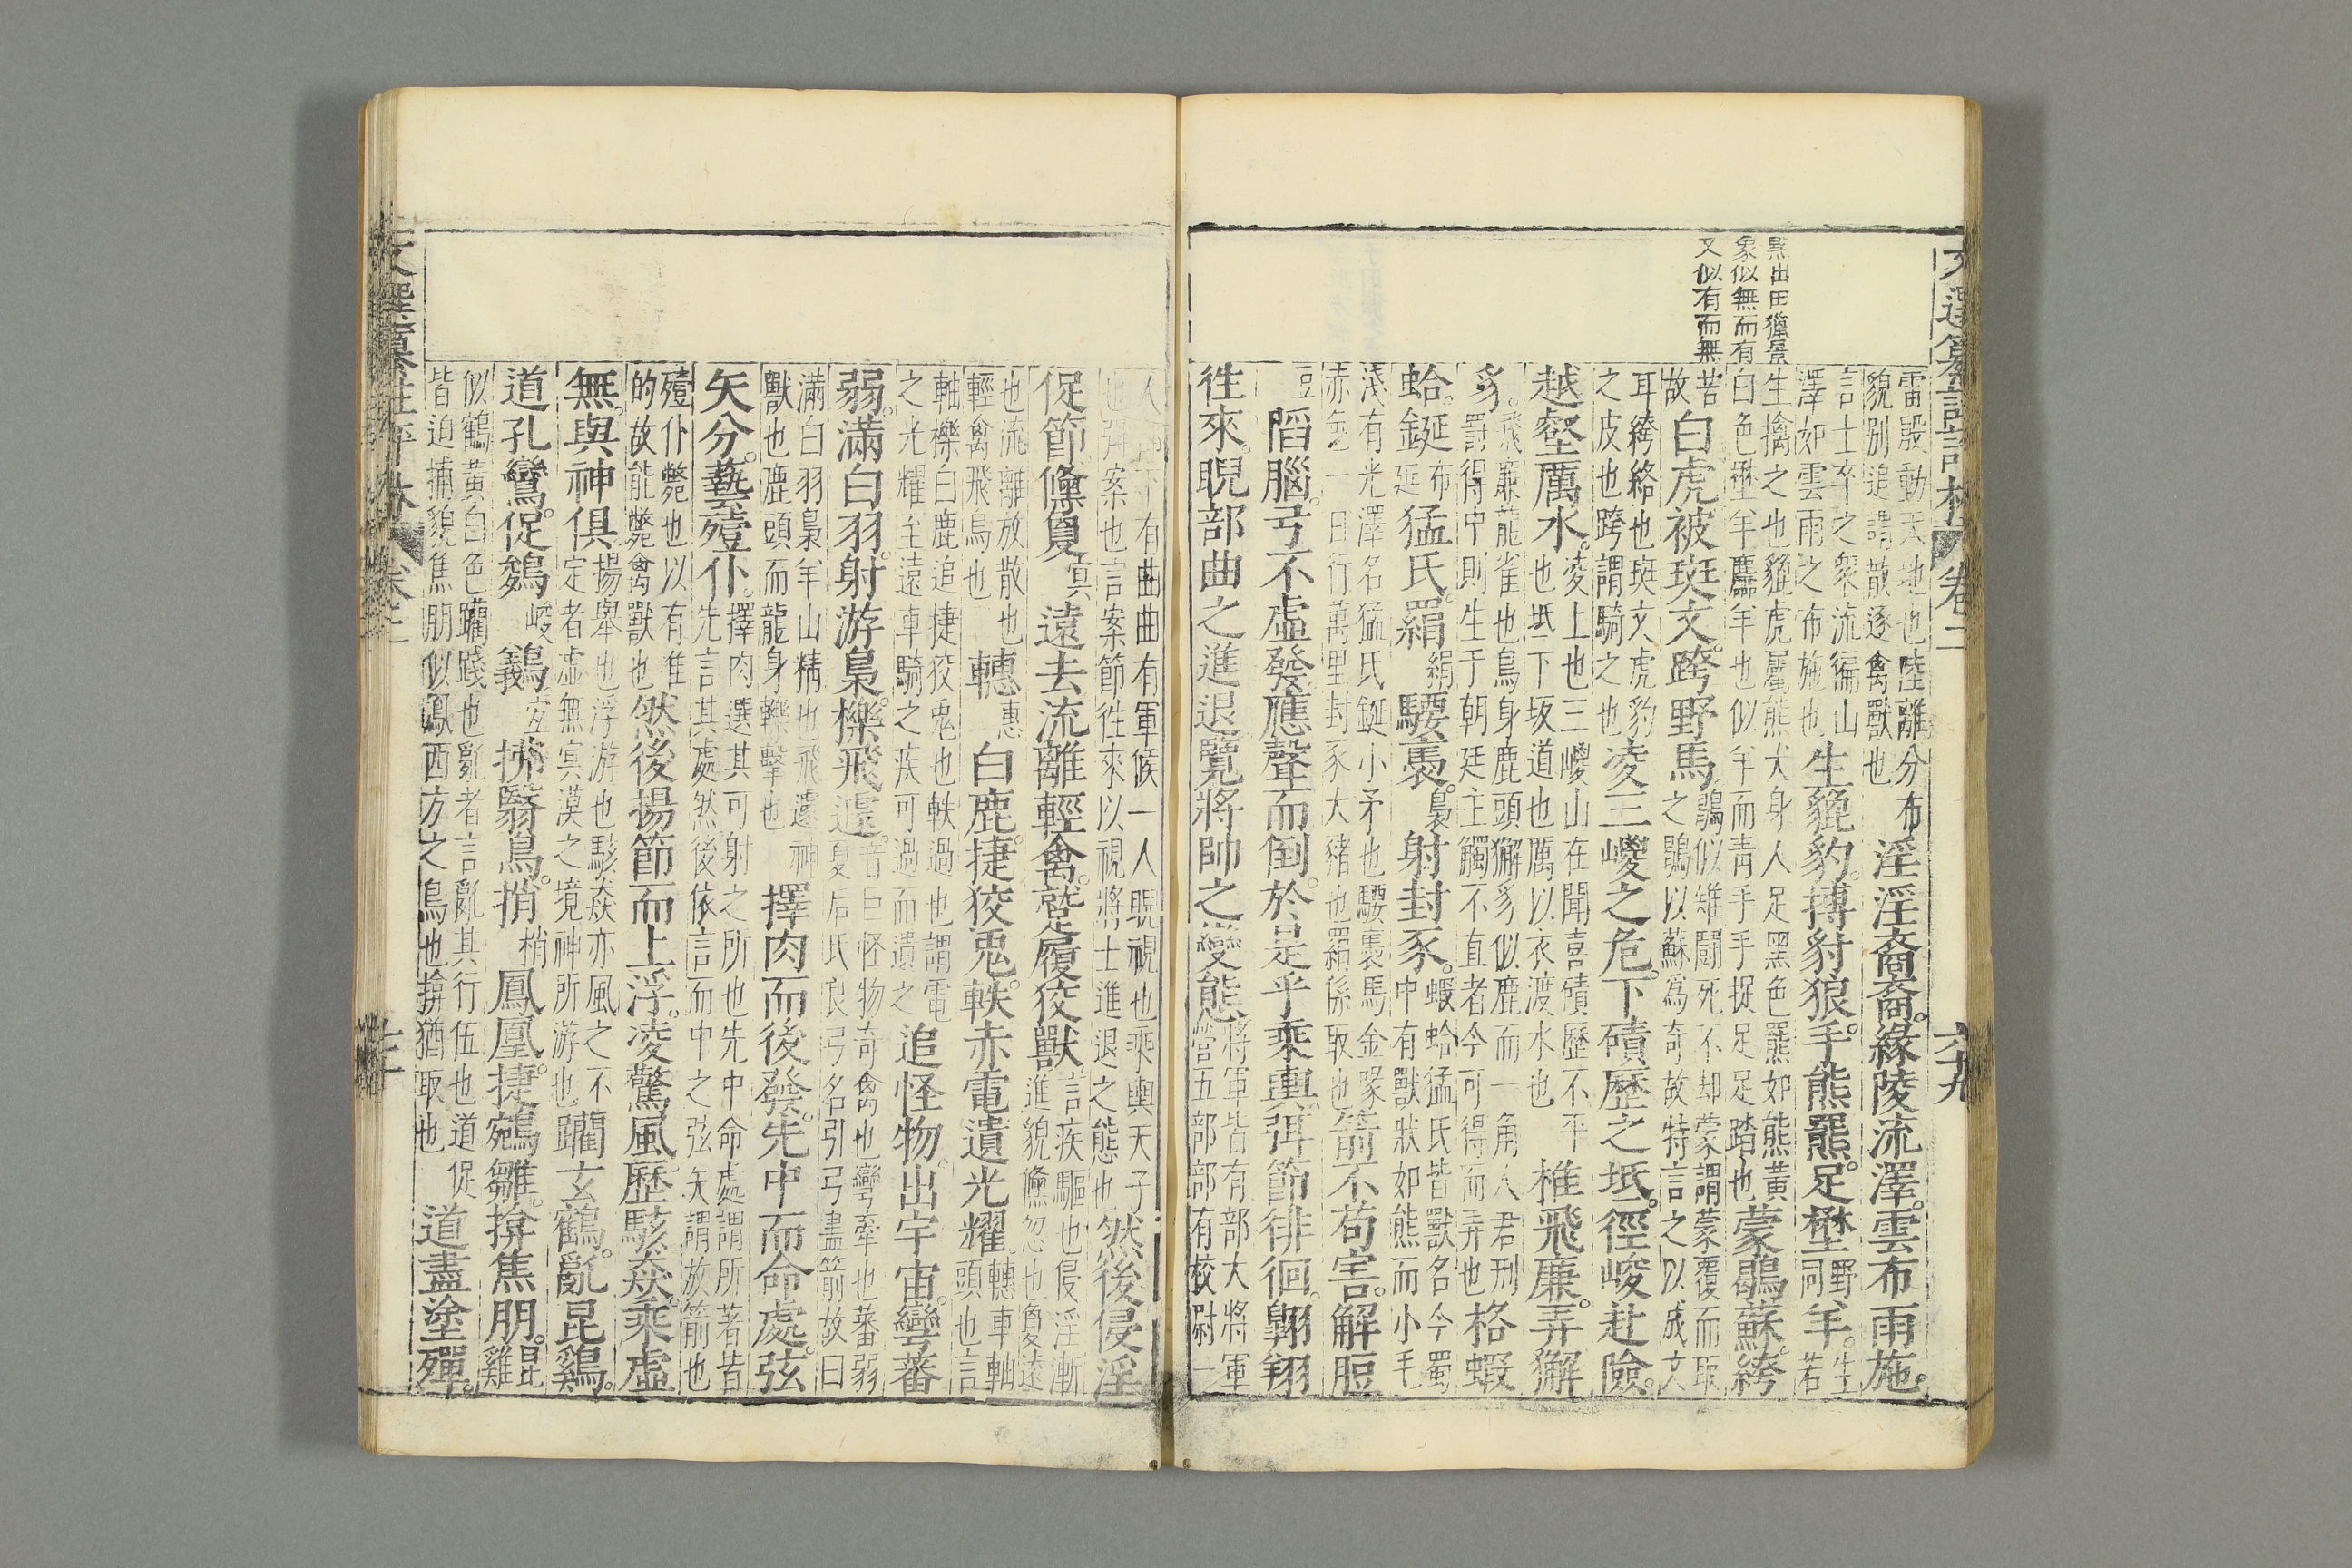 文選纂註評林 卷二 六十九
點出田獵景
象似無而有
又似有而無
雷殷動天地也陸離分布
貌別追謂散逐禽獸也
淫淫裔裔。緣陵流澤。雲布雨施。
言士卒之衆流徧山
澤如雲雨之布施也
生貔豹。搏豺狼。手熊羆。足壄野同羊。生若
生擒之也貔虎屬熊犬身人足黑色羆如熊黃
白色壄羊麢羊也似羊而青手手捉足足踏也
蒙鶡蘇。絝
苦故
白虎被斑文。跨野馬。
鶡似雉鬪死不却蒙謂蒙覆而取
之鶡以蘇爲奇故特言之以成文
耳絝絡也斑文虎豹
之皮也跨謂騎之也
凌三嵕之危。下磧歷之坻。徑峻赴險。
越壑厲水。
凌上也三嵕山在聞喜磧歷不平
也坻下坂道也厲以衣渡水也
椎飛廉。弄獬
豸。
飛廉龍雀也鳥身鹿頭獬豸似鹿而一角人君刑
罰得中則生于朝廷主觸不直者今可得而弄也
格蝦
蛤。鋋延猛氏。羂絹騕褭。裊射封豕。
蝦蛤猛氏皆獸名今蜀
中有獸狀如熊而小毛
淺有光澤名猛氏鋋小矛也騕褭馬金喙
赤色一日行萬里封豕大豬也羂係取也
箭不苟害。解脰
豆
陷腦。弓不虛發應聲而倒。於是乎乘輿弭節徘徊。翺翔
往來。睨部曲之進退。覽將帥之變態
將軍皆有部大將軍
營五部部有校尉一
人部下有曲曲有軍候一人睨視也乘輿天子
也弭案也言案節徃來以視將士進退之態也
然後侵淫
促節儵敻冥遠去流離輕禽。蹵履狡獸。
言疾驅也侵淫漸
進貌儵忽也敻遠
也流離放散也
輕禽飛鳥也
轊惠白鹿。捷狡兎。軼赤電遺光耀。
轊車軸
頭也言
軸轢白鹿追捷狡兎也軼過也謂電
之光耀至遠車騎之疾可過而遺之
追怪物。出宇宙。彎蕃
弱。滿白羽。射游梟。櫟飛遽。
音巨怪物奇禽也彎牽也蕃弱
夏后氏良弓名引弓盡箭故曰
滿白羽梟羊山精也飛遽神
獸也鹿頭而龍身轢擊也
擇肉而後發。先中而命處。弦
矢分。藝殪仆。
擇肉選其可射之所也先中命處謂所著皆
先言其處然後依言而中之弦矢謂放箭也
殪仆斃也以有準
的故能斃禽獸也
然後揚節而上浮。凌驚風。歷駭猋。乘虛
無。與神俱
揚舉也浮游也駭猋亦風之不
定者虛無冥漠之境神所游也
躪玄鶴。亂昆鷄。
道孔鸞。促鵕峻鸃宜拂翳鳥。捎梢鳳凰。捷鵷雛。揜焦朋。
昆雞
似鶴黃白色躪踐也亂者言亂其行伍也道促
皆迫捕貌焦朋似鳳西方之鳥也揜猶取也
道盡塗殫。